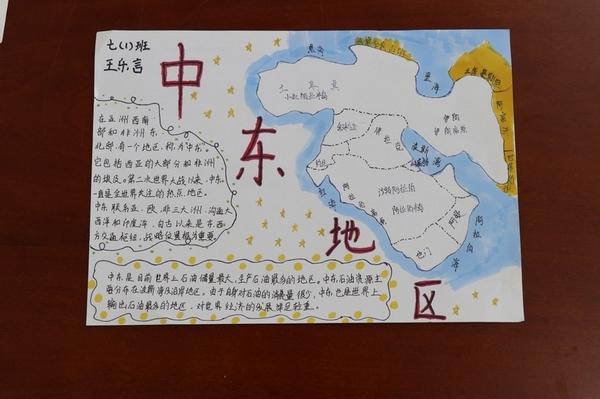 七(1)班
王乐言
中东地区
在亚洲西南
部和非洲东
北部,有一个地区,称为“中东”。
它包括西亚的大部分和非洲
的埃及。第二次世界大战以来,中东
一直是全世界关注的热点地区。
中东联系亚、欧、非三大洲,沟通大
西洋和印度洋,自古以来是东西
方交通枢纽,战略位置极为重要。
中东是目前世界上石油储量最大,生产石油最多的地区。中东石油资源主
要分布在波斯湾及沿岸地区。由于自身对石油的消费量很少,中东也是世界上
输出石油最多的地区,对世界经济的发展举足轻重。
黑海
里海
土库曼斯坦
阿富汗
土耳其
小亚细亚半岛
叙利亚
伊拉克
伊朗
伊朗高原
波斯湾
红海
阿拉伯高原
沙特阿拉伯
阿拉伯半岛
阿曼
也门
阿拉伯海